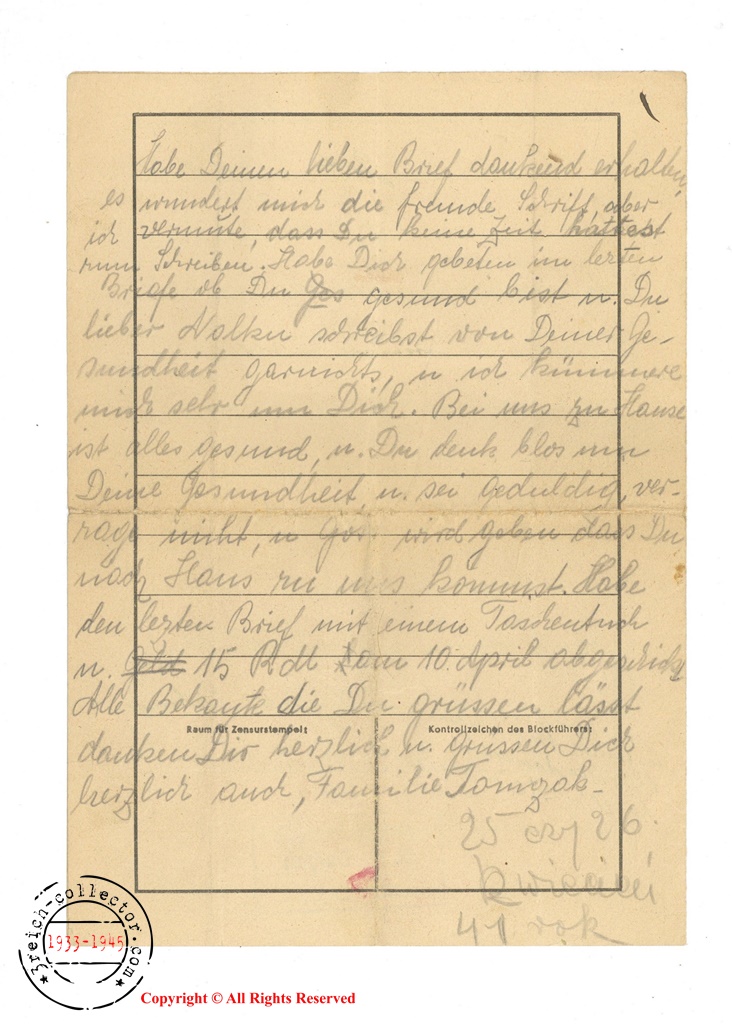 Habe Deinen lieben Brief dankend erhalten,
es wundert mich die fremde Schrift, aber
ich vermute, dass Du keine Zeit hattest
zum Schreiben. Habe Dich gebeten im lezten
Briefe ob Du Ges gesund bist u. Du
lieber schreibst von Deiner Ge-
sundheit garnichts, u ich kümmere
mich sehr um Dich. Bei uns zu Hause
ist alles gesund, u. Du denk blos um
Deine Gesundheit, u. sei geduldig, ver-
zage nicht, u Gott wird geben dass Du
nach Haus zu uns kommst. Habe
den lezten Brief mit einem Taschentuch
u. Geld 15 RdM am 10. April abgeschickt
Alle Bekante die Du grüssen lässt
Raum für Zensurstempel: Kontrollzeichen des Blockführers:
danken Dir herzlich u. Grüssen Dich
herzlich auch, Familie Tomczak-
25 czy 26.
kwiecień
41 rok
3reich-collector.com
1933-1945
Copyright © All Rights Reserved